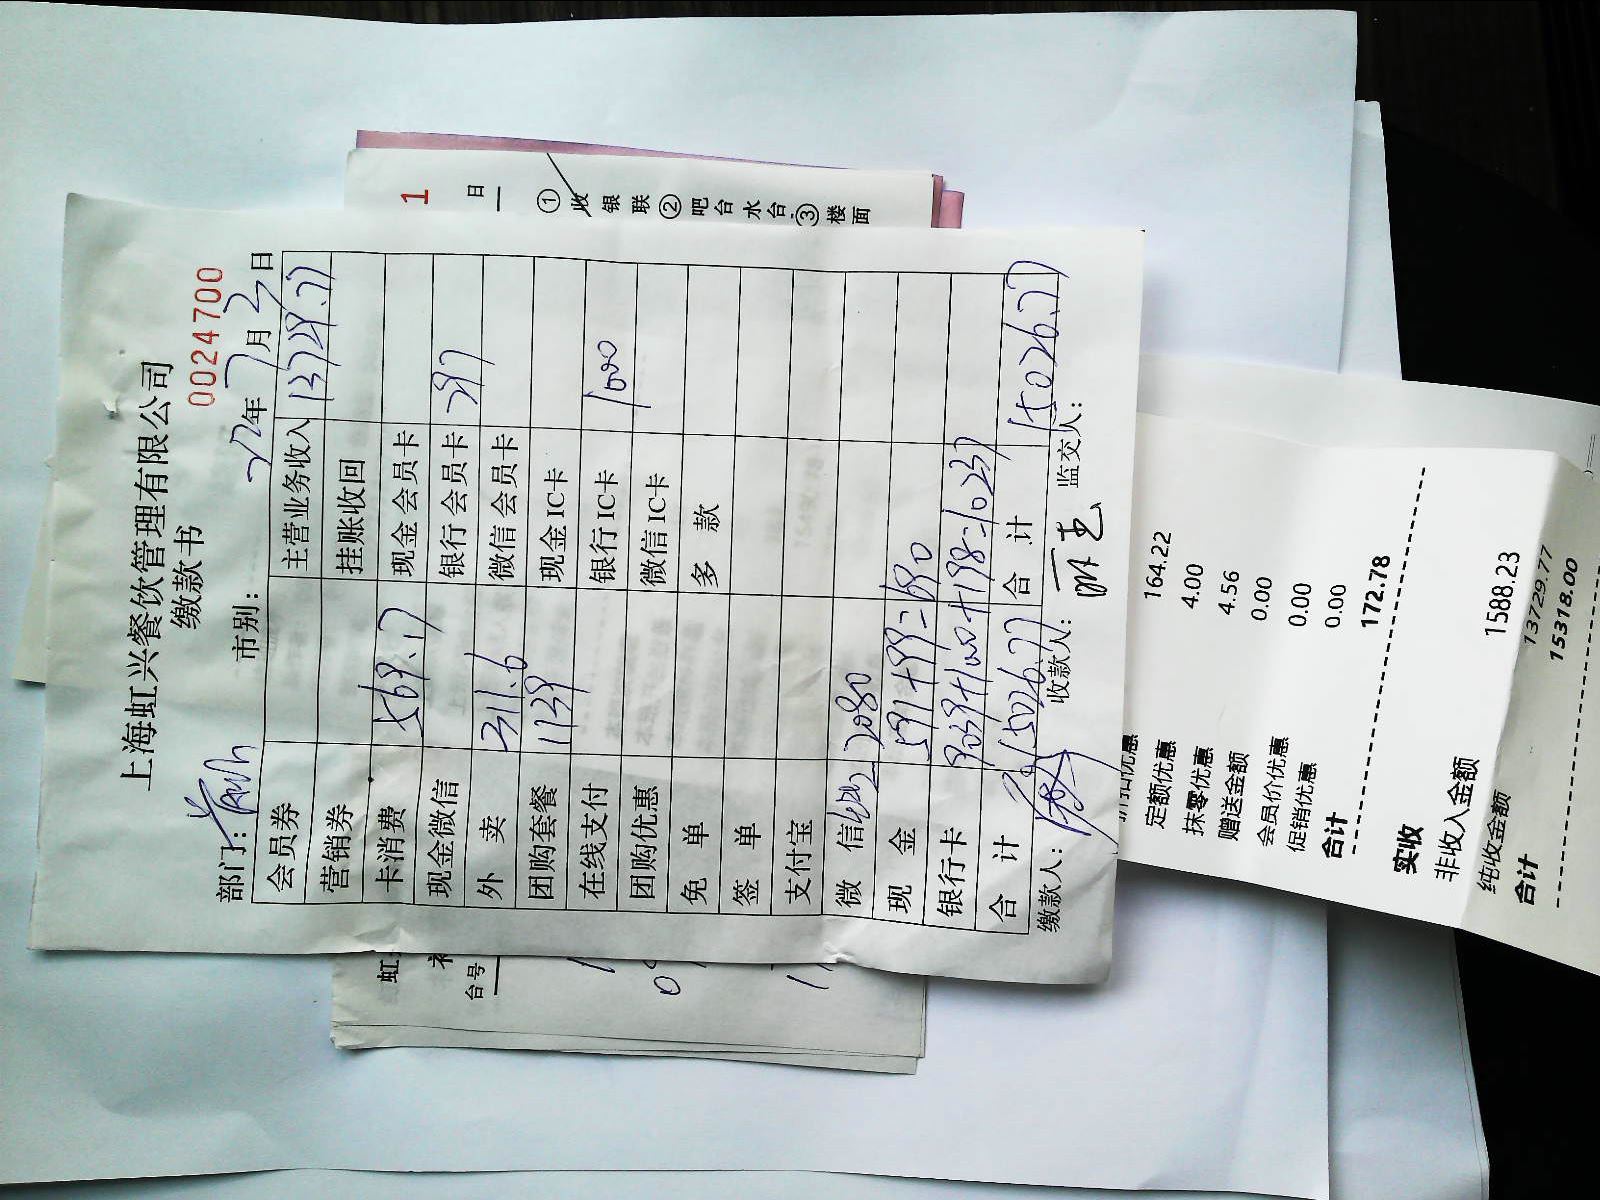 上海虹兴餐饮管理有限公司
缴款书
0024700
部门: 市别: 22年7月2日
会员券 主营业务收入 13729.77
营销券 挂账收回
卡消费 569.17 现金会员卡
现金微信 银行会员卡 297
外卖 311.6 微信会员卡
团购套餐 1139 现金IC卡
在线支付 银行IC卡 1000
团购优惠 微信IC卡
免单 多款
签单
支付宝
微信 2080
现金 591+99=690
银行卡 9039+1000+198=10237
合计 15026.77 合计 15026.77
缴款人: 收款人: 监交人:
1
日
①收银联②吧台水台③楼面
虹
台号
折扣优惠
定额优惠 164.22
抹零优惠 4.00
赠送金额 4.56
会员价优惠 0.00
促销优惠 0.00
0.00
合计 172.78
实收
非收入金额 1588.23
纯收金额 13729.77
合计 15318.00